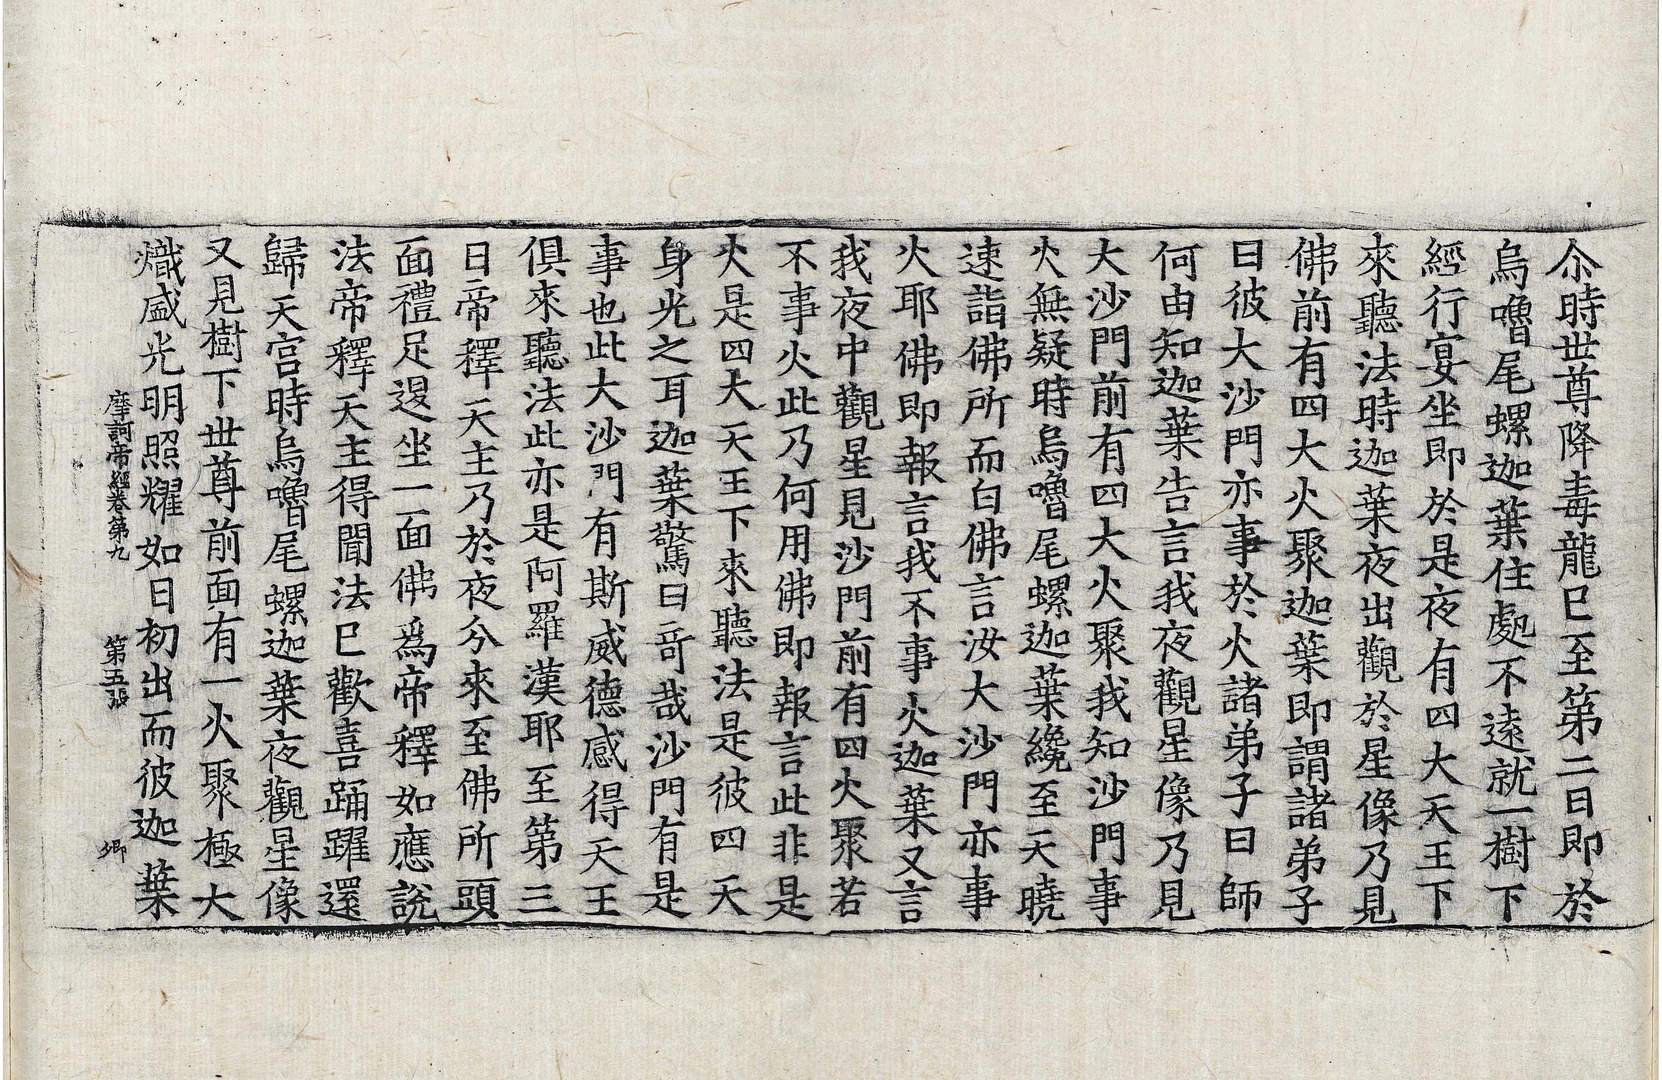 尒時世尊降毒龍已至第二日即於
烏嚕尾螺迦葉住處不遠就一樹下
經行宴坐即於是夜有四大天王下
來聽法時迦葉夜出觀於星像乃見
佛前有四大火聚迦葉即謂諸弟子
曰彼大沙門亦事於火諸弟子曰師
何由知迦葉告言我夜觀星像乃見
大沙門前有四大火聚我知沙門事
火無疑時烏嚕尾螺迦葉纔至天曉
速詣佛所而白佛言汝大沙門亦事
火耶佛即報言我不事火迦葉又言
我夜中觀星見沙門前有四火聚若
不事火此乃何用佛即報言此非是
火是四大天王下來聽法是彼四天
身光之耳迦葉驚曰奇哉沙門有是
事也此大沙門有斯威德感得天王
俱來聽法此亦是阿羅漢耶至第三
日帝釋天主乃於夜分來至佛所頭
面禮足退坐一面佛爲帝釋如應說
法帝釋天主得聞法已歡喜踊躍還
歸天宮時烏嚕尾螺迦葉夜觀星像
又見樹下世尊前面有一火聚極大
熾盛光明照耀如日初出而彼迦葉
摩訶帝經卷第九　第五張　卿